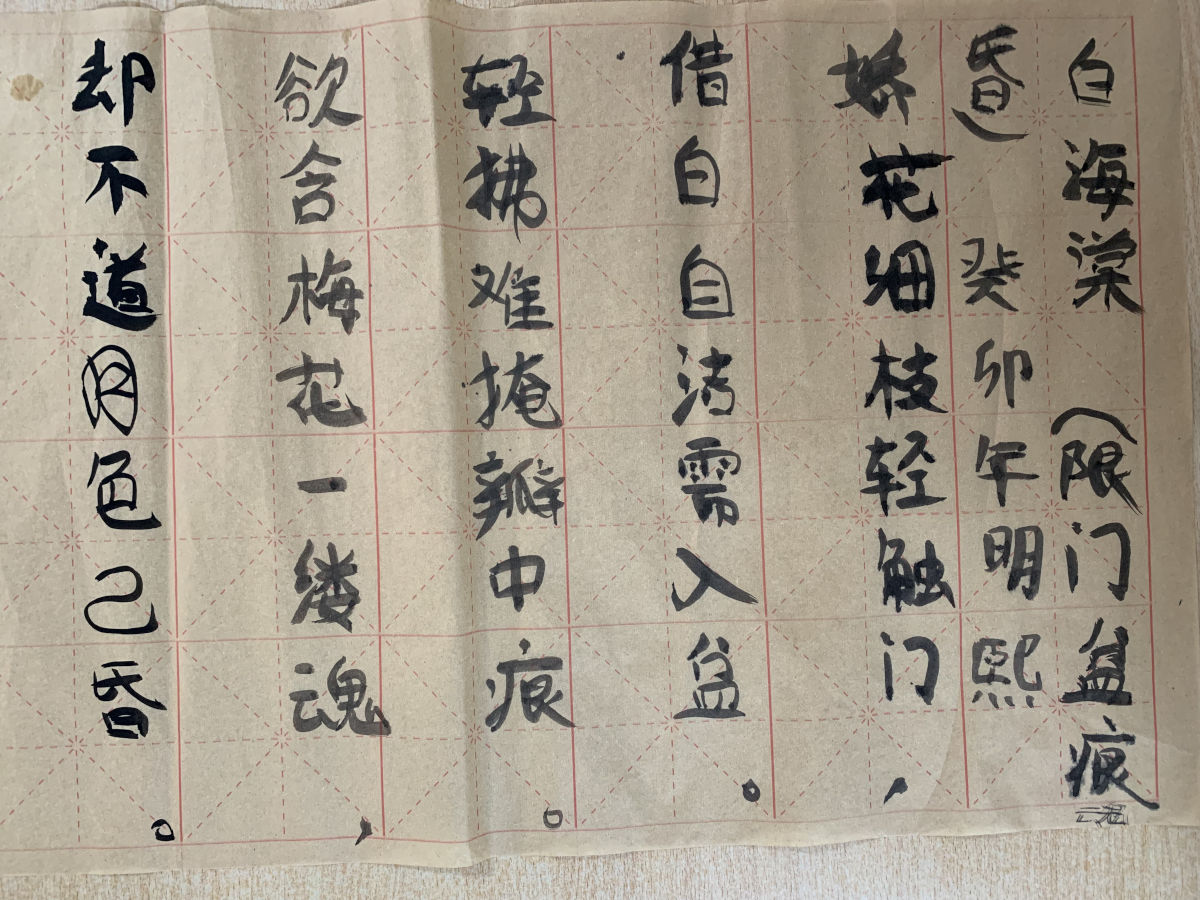 白海棠（限门盆痕魂
昏）癸卯年明熙
娇花细枝轻触门，
借白自清需入盆。
轻拂难掩瓣中痕。
欲含梅花一缕魂，
却不道月色已昏。